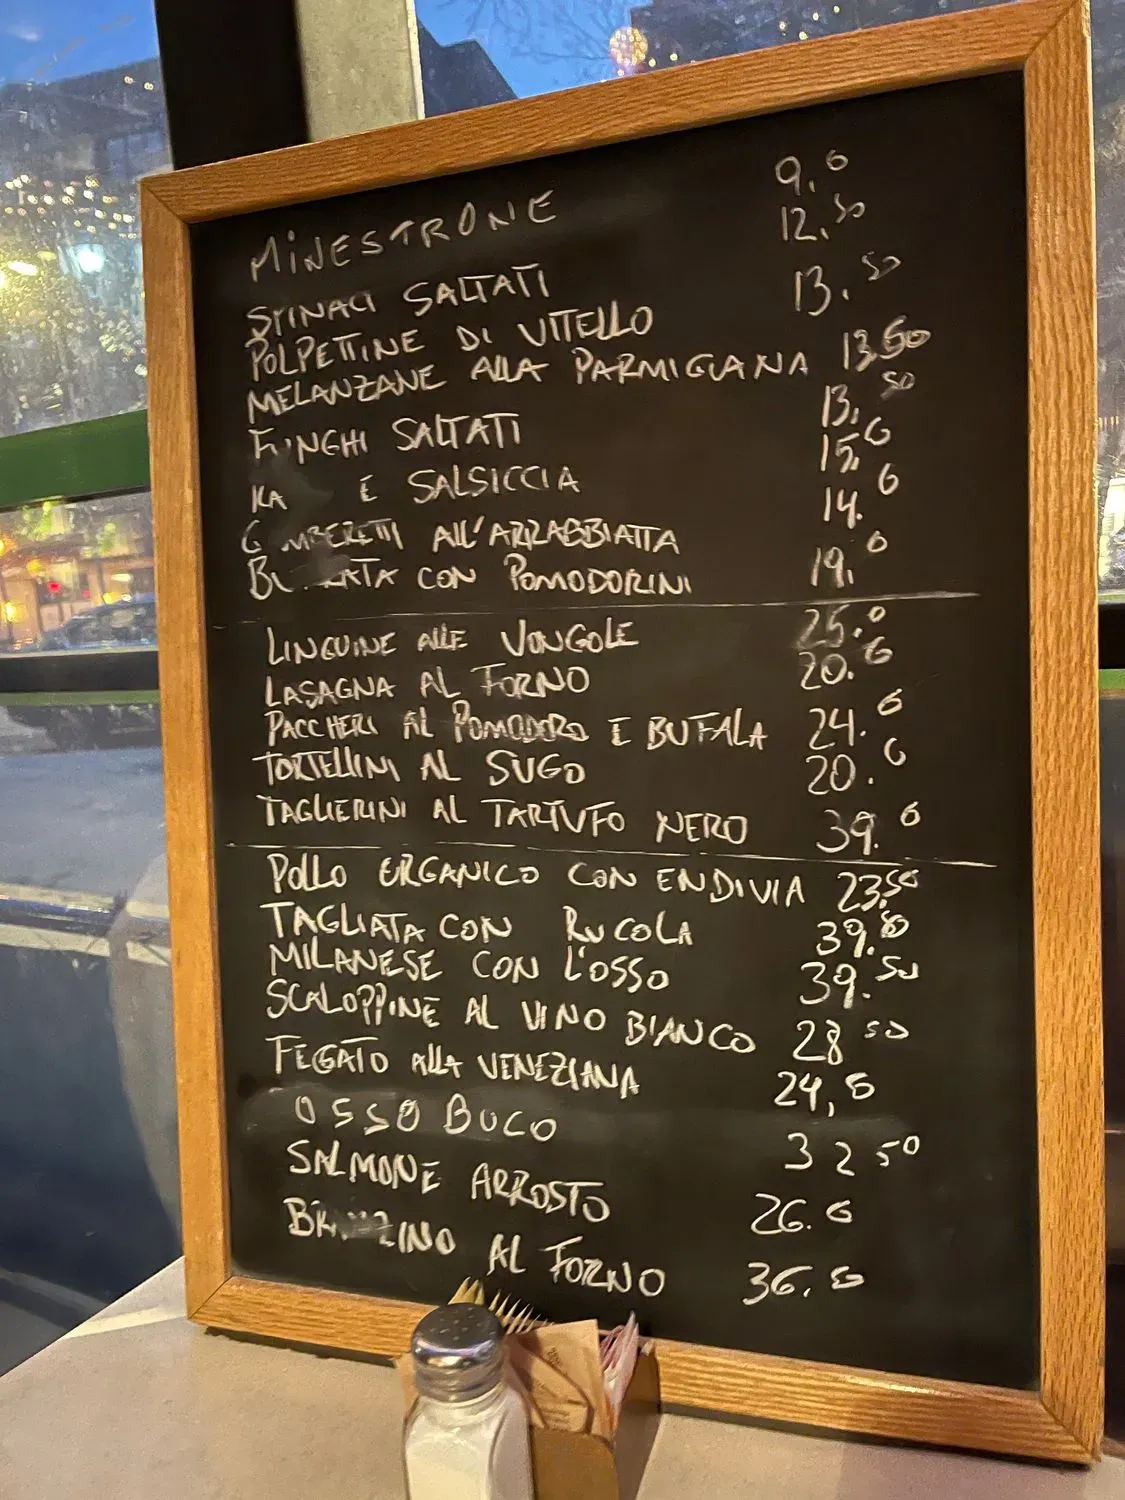 MINESTRONE 9.0
SPINACI SALTATI 12.50
POLPETTINE DI VITELLO 13.50
MELANZANE ALLA PARMIGIANA 13.50
FUNGHI SALTATI 13.50
E SALSICCIA 15.0
GAMBERETTI ALL'ARRABBIATTA 14.0
BURRATA CON POMODORINI 19.0
LINGUINE ALLE VONGOLE 25.0
LASAGNA AL FORNO 20.0
PACCHERI AL POMODORO E BUFALA 24.0
TORTELLINI AL SUGO 20.0
TAGLIERINI AL TARTUFO NERO 39.0
POLLO ORGANICO CON ENDIVIA 23.50
TAGLIATA CON RUCOLA 39.50
MILANESE CON L'OSSO 39.50
SCALOPPINE AL VINO BIANCO 28 50
FEGATO ALLA VENEZIANA 24,0
OSSO BUCO 32 50
SALMONE ARROSTO 26.0
BRANZINO AL FORNO 36.0